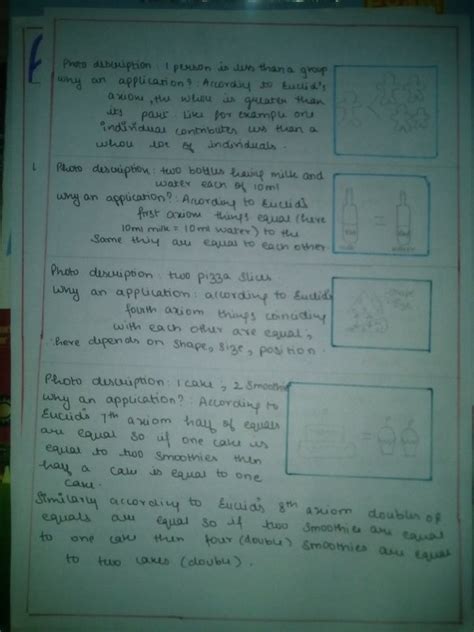 Photo description : 1 person is less than a group
why an application? : According to Euclid's
axiom, the whole is greater than
its part. like for example one
individual contributes less than a
whole lot of individuals.
Photo description: two bottles having milk and
water each of 10ml
why an application? : According to Euclid's
first axiom things equal (here
10ml milk = 10ml water) to the
same thing are equal to each other.
=
Photo description : two pizza slices
Why an application : according to Euclid's
fourth axiom things coinciding
with each other are equal,
here depends on shape, size, position.
Photo description : 1 cake, 2 smoothies
why an application? : According to
Euclid's 7th axiom half of equals
are equal so if one cake is
equal to two smoothies then
half a cake is equal to one
cake.
=
Similarly according to Euclid's 8th axiom doubles of
equals are equal so if two smoothies are equal
to one cake then four (double) smoothies are equal
to two cakes (double).